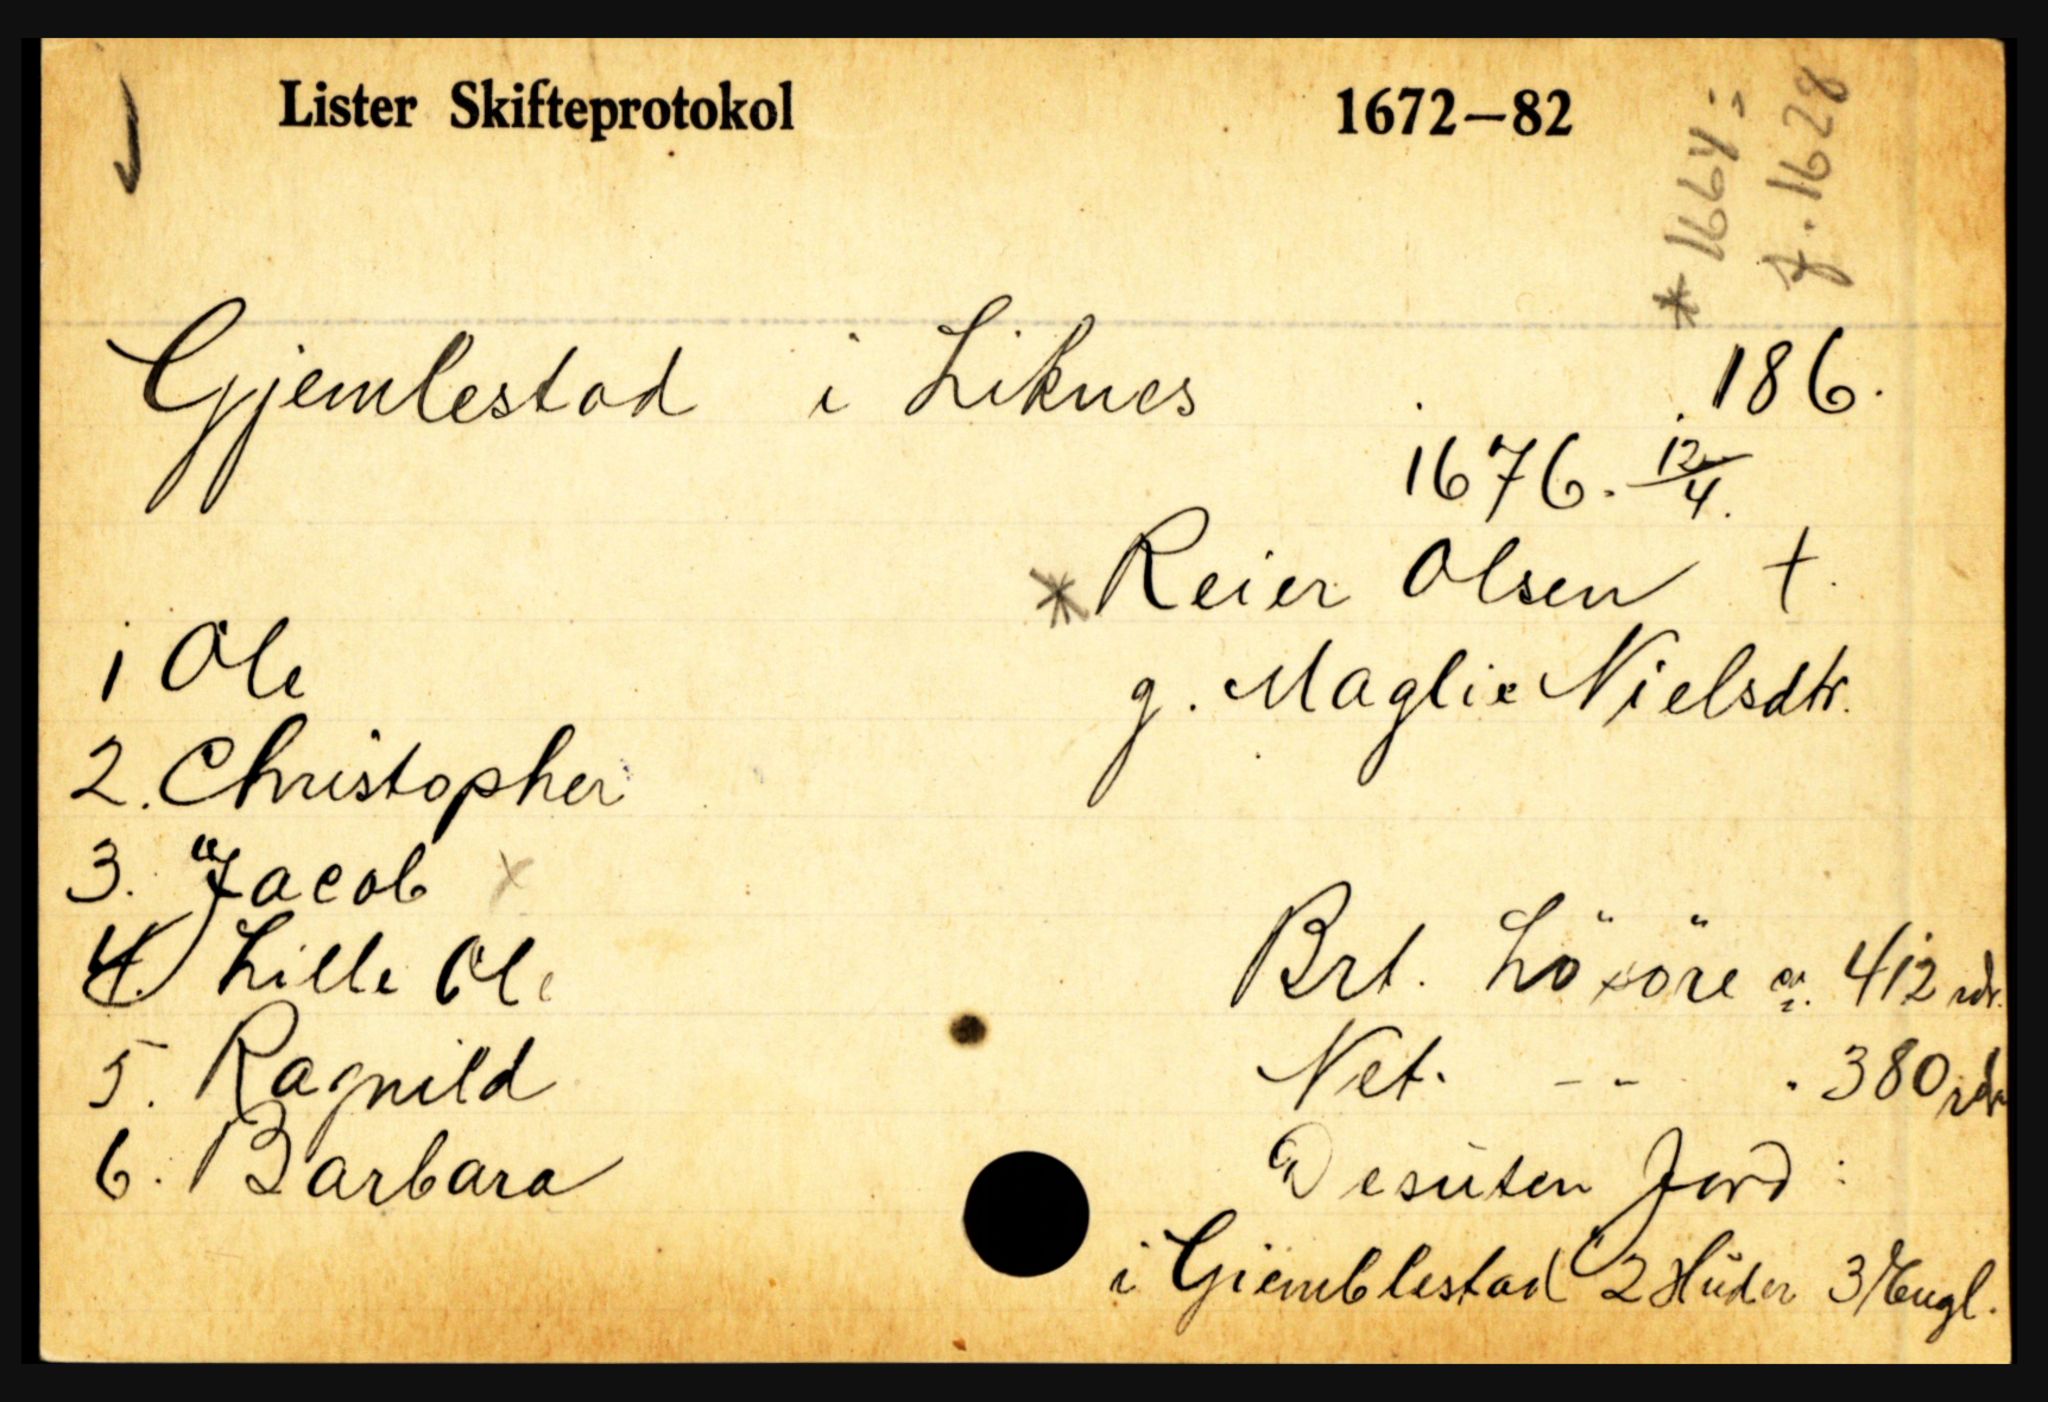 Lister Skifteprotokol 1672–82
* 1664:
f. 1628
Gjemlestad i Liknes 186.
1676. 12/4.
* Reier Olsen †.
g. Maglie Nielsdtr.
1 Ole
2. Christopher
3. Jacob x
4. Lille Ole
5. Ragnild
6. Barbara
Brt. Lösöre 412 rdr.
Net. -- . 380 rdr
Desuten Jord:
i Giemblestad 2 Huder 3 Engl.